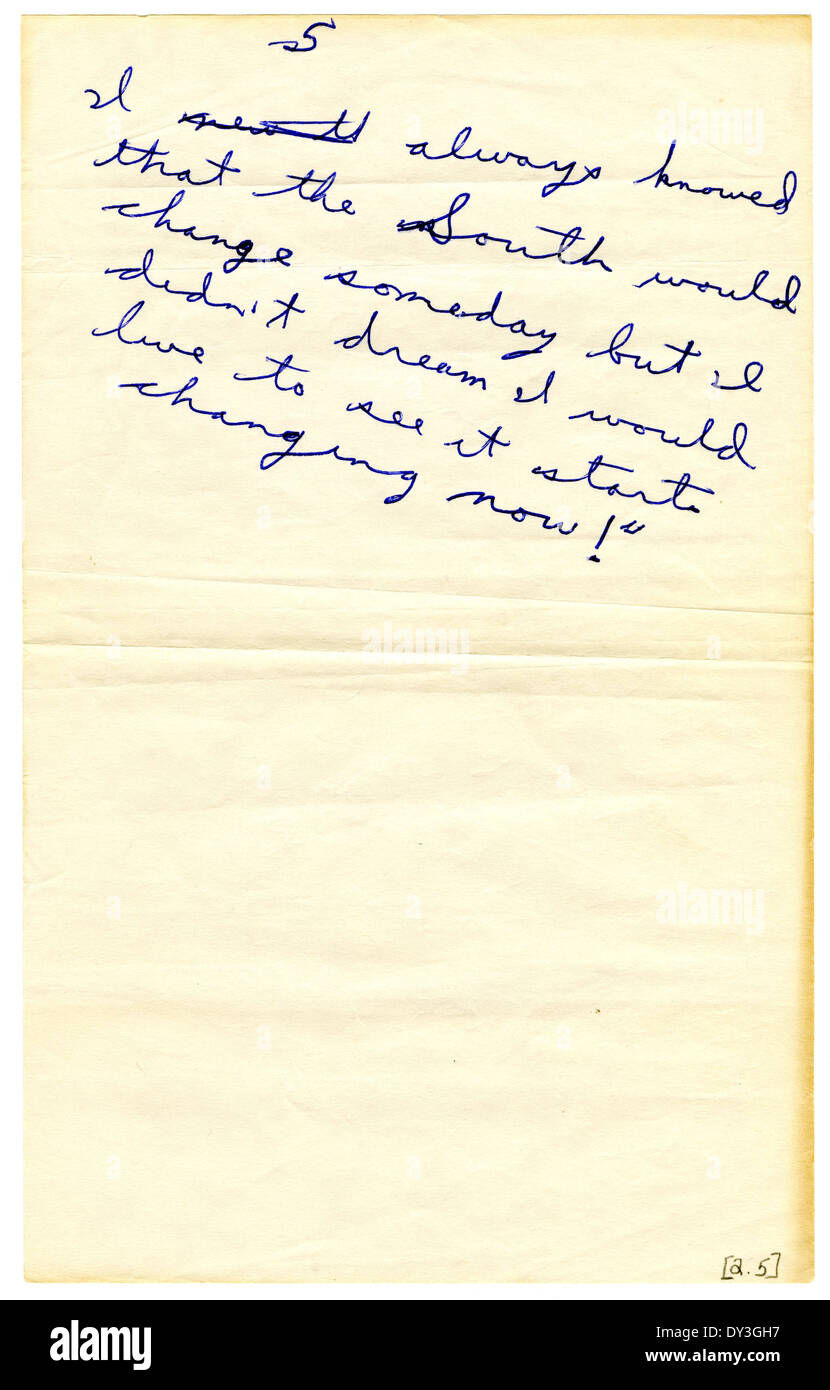 5
I always knowed
that the South would
change someday but I
didn't dream I would
live to see it start
changing now!"
[2.5]
alamy
Image ID: DY3GH7
www.alamy.com